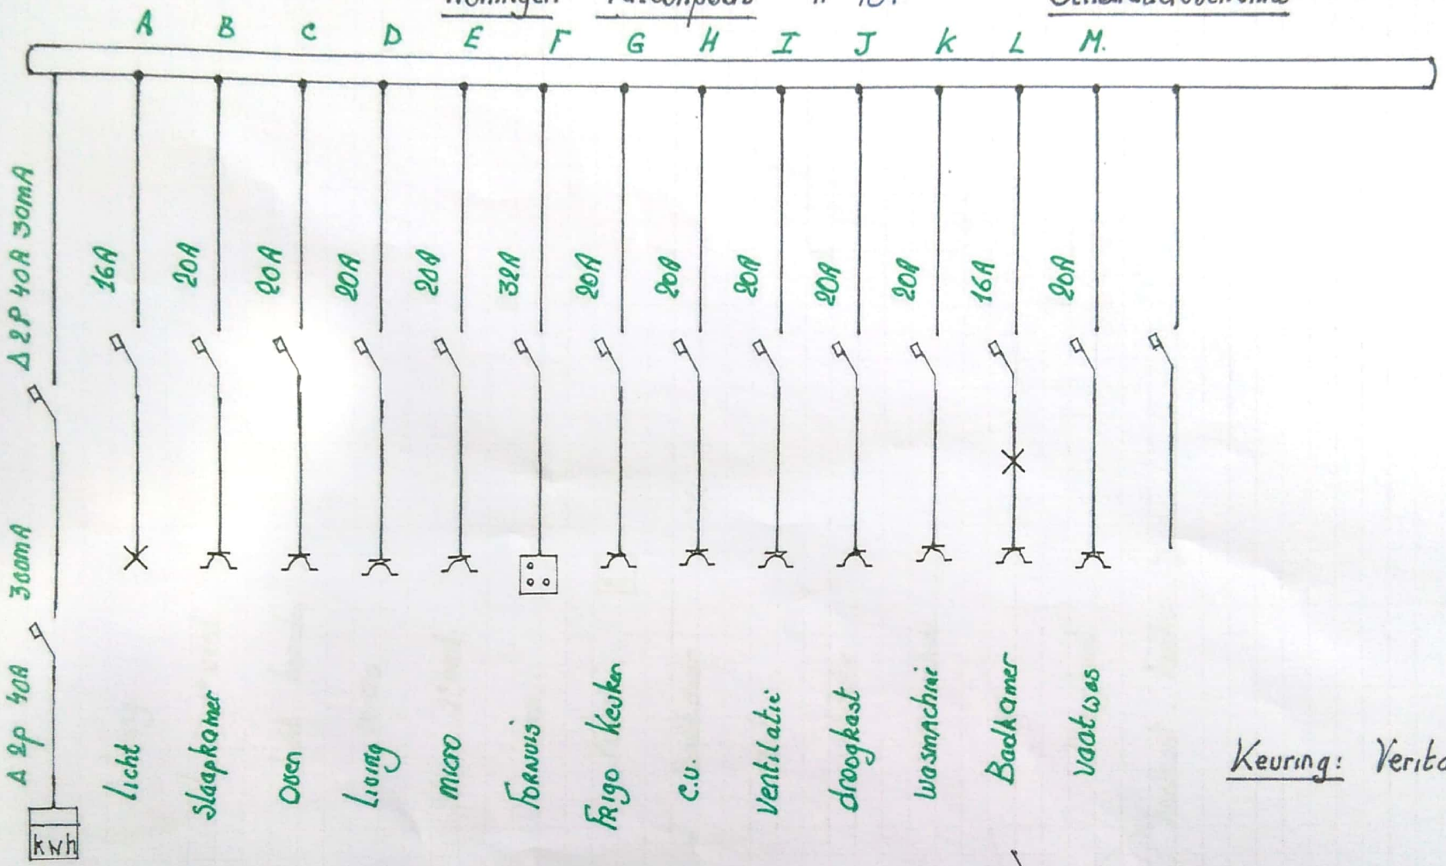 Woningen
A B C D E F G H I J K L M.
Δ 2P 40A 30mA
16A
20A
20A
20A
20A
32A
20A
20A
20A
20A
20A
16A
20A
300mA
Δ 2p 40A
kwh
Licht
Slaapkamer
Oven
Living
Micro
Fornuis
Frigo Keuken
C.V.
Ventilatie
droogkast
wasmachine
Badkamer
Vaatwas
Keuring: